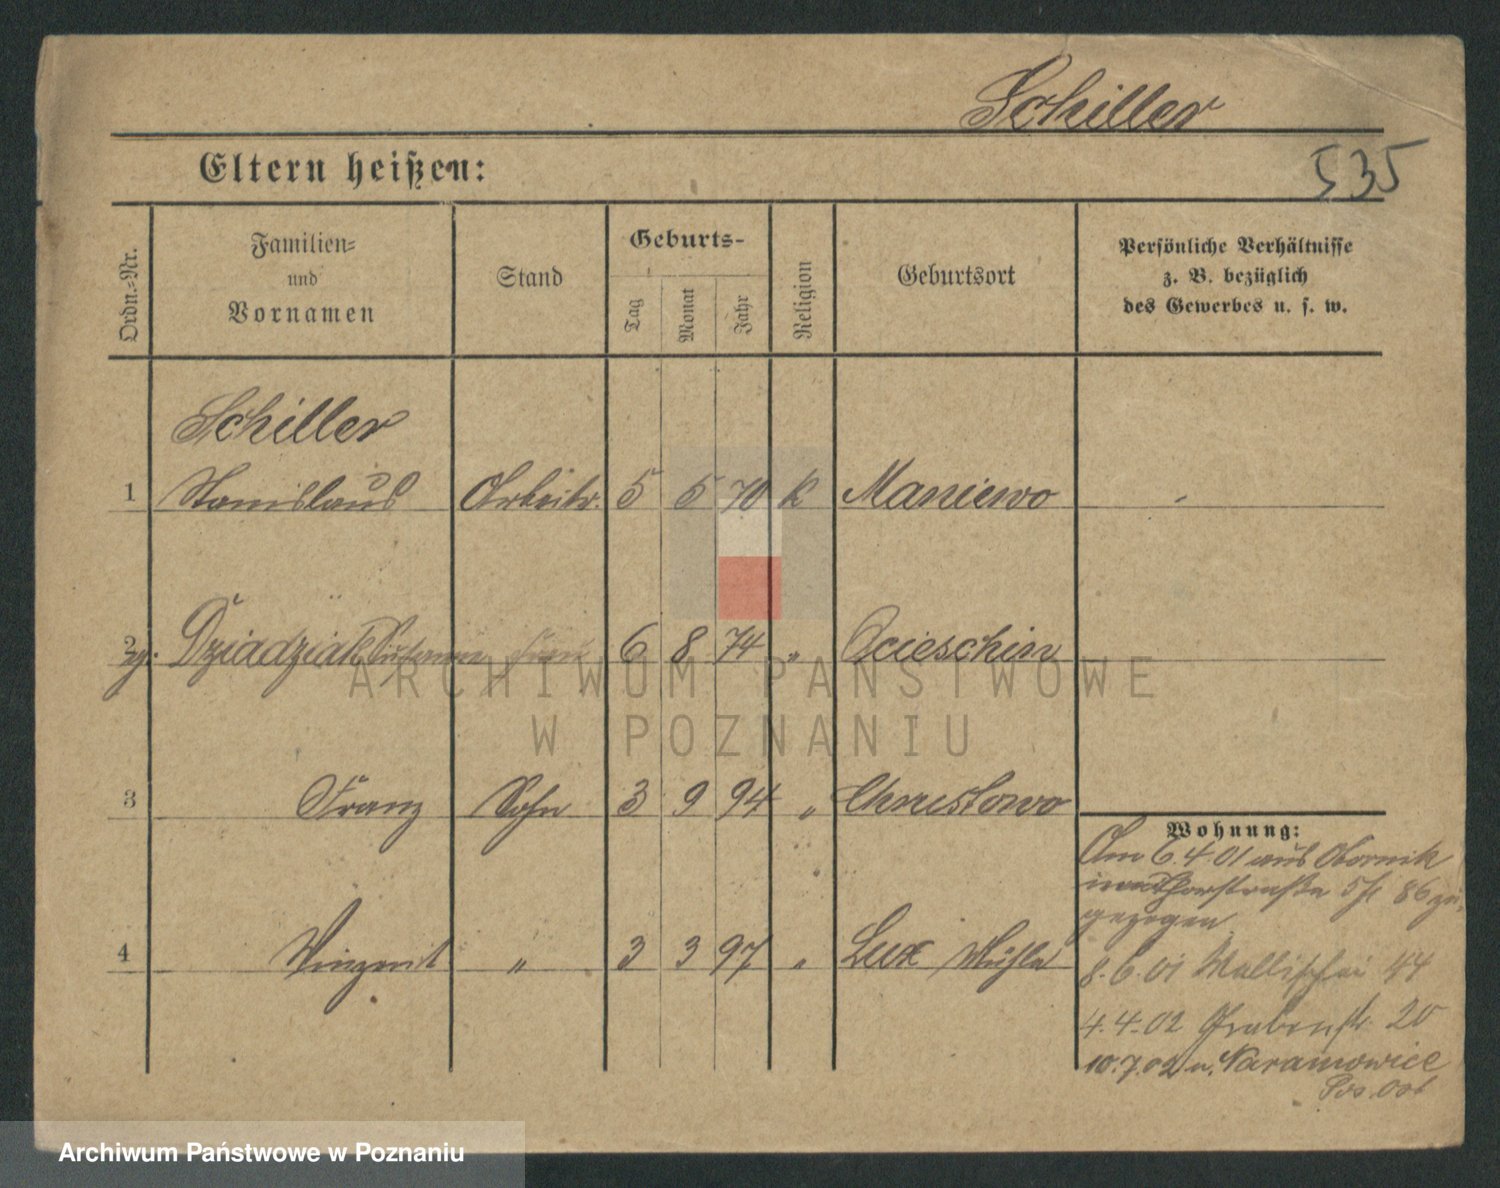 Schiller
535
Eltern heißen:
Ordn.-Nr.
Familien-
und
Vornamen
Stand
Geburts-
Tag
Monat
Jahr
Religion
Geburtsort
Persönliche Verhältnisse
z. B. bezüglich
des Gewerbes u. s. w.
Schiller
1 Stanislaus Arbeitr. 5 5 70 k Maniewo
2 Dziadziak Susanna Frau 6 8 74 " Ocieschin
3 Franz Sohn 3 9 94 " Chrustowo
4 Vinzent " 3 3 97 " Lux Mühle
Wohnung:
Am 6.4.01 aus Obornik
86 zu-
gezogen
8.6.01 Wallischei 44
4.4.02 Grabenstr. 20
10.7.02 n. Naramowice
Pos. Ost
ARCHIWUM PAŃSTWOWE
W POZNANIU
Archiwum Państwowe w Poznaniu